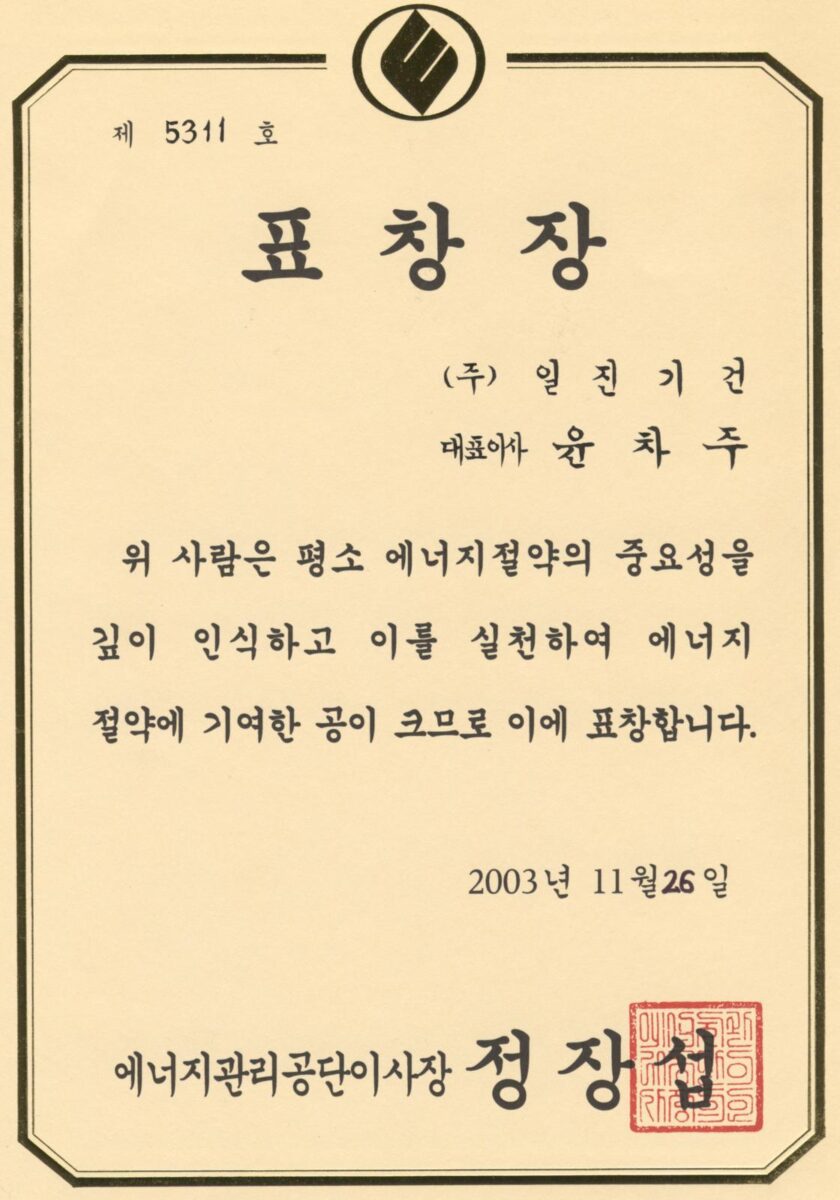 제 5311 호
표 창 장
(주) 일 진 기 건
대표이사 윤 차 주
위 사람은 평소 에너지절약의 중요성을
깊이 인식하고 이를 실천하여 에너지
절약에 기여한 공이 크므로 이에 표창합니다.
2003년 11월 26일
에너지관리공단이사장 정 장 섭